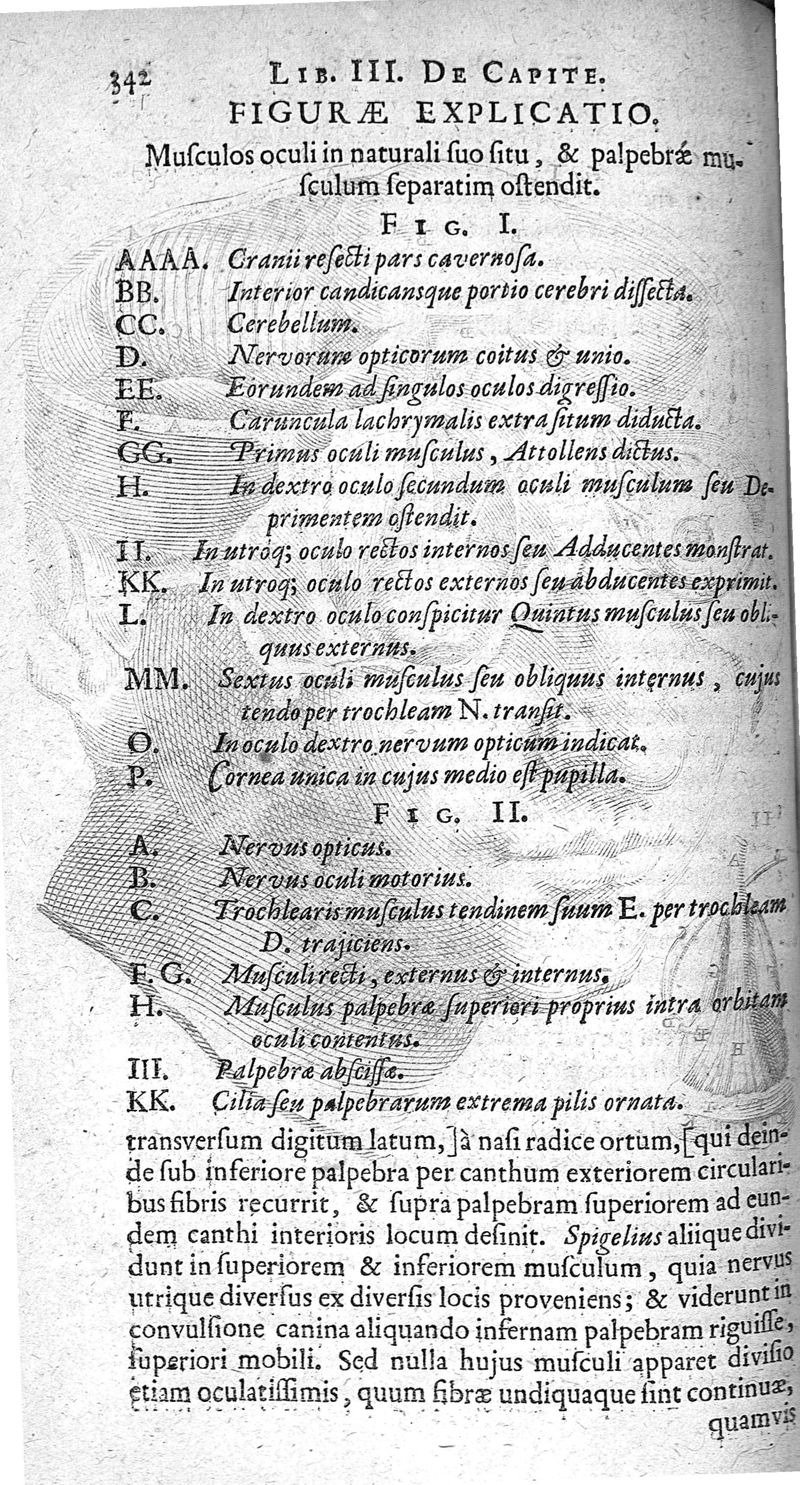 342 LIB. III. DE CAPITE.
FIGURÆ EXPLICATIO.
Muſculos oculi in naturali ſuo ſitu, & palpebræ mu-
ſculum ſeparatim oſtendit.
FIG. I.
AAAA. Cranii reſecti pars cavernoſa.
BB. Interior candicansque portio cerebri diſſecta.
CC. Cerebellum.
D. Nervorum opticorum coitus & unio.
EE. Eorundem ad ſingulos oculos digreſſio.
F. Caruncula lachrymalis extra ſitum diducta.
GG. Primus oculi muſculus, Attollens dictus.
H. In dextro oculo ſecundum oculi muſculum ſeu De-
primentem oſtendit.
II. In utroq; oculo rectos internos ſeu Adducentes monſtrat.
KK. In utroq; oculo rectos externos ſeu abducentes exprimit.
L. In dextro oculo conſpicitur Quintus muſculus ſeu obli-
quus externus.
MM. Sextus oculi muſculus ſeu obliquus internus, cujus
tendo per trochleam N. tranſit.
O. In oculo dextro nervum opticum indicat.
P. Cornea unica in cujus medio eſt pupilla.
FIG. II.
A. Nervus opticus.
B. Nervus oculi motorius.
C. Trochlearis muſculus tendinem ſuum E. per trochleam
D. trajiciens.
F. G. Muſculi recti, externus & internus.
H. Muſculus palpebræ ſuperiori proprius intra orbitam
oculi contentus.
III. Palpebræ abſciſſæ.
KK. Cilia ſeu palpebrarum extrema pilis ornata.
transverſum digitum latum,] à naſi radice ortum, [qui dein-
de ſub inferiore palpebra per canthum exteriorem circulari-
bus fibris recurrit, & ſupra palpebram ſuperiorem ad eun-
dem canthi interioris locum deſinit. Spigelius aliique divi-
dunt in ſuperiorem & inferiorem muſculum, quia nervus
utrique diverſus ex diverſis locis proveniens; & viderunt in
convulſione canina aliquando infernam palpebram riguiſſe,
ſuperiori mobili. Sed nulla hujus muſculi apparet diviſio
etiam oculatiſſimis, quum fibræ undiquaque ſint continuæ,
quamvis